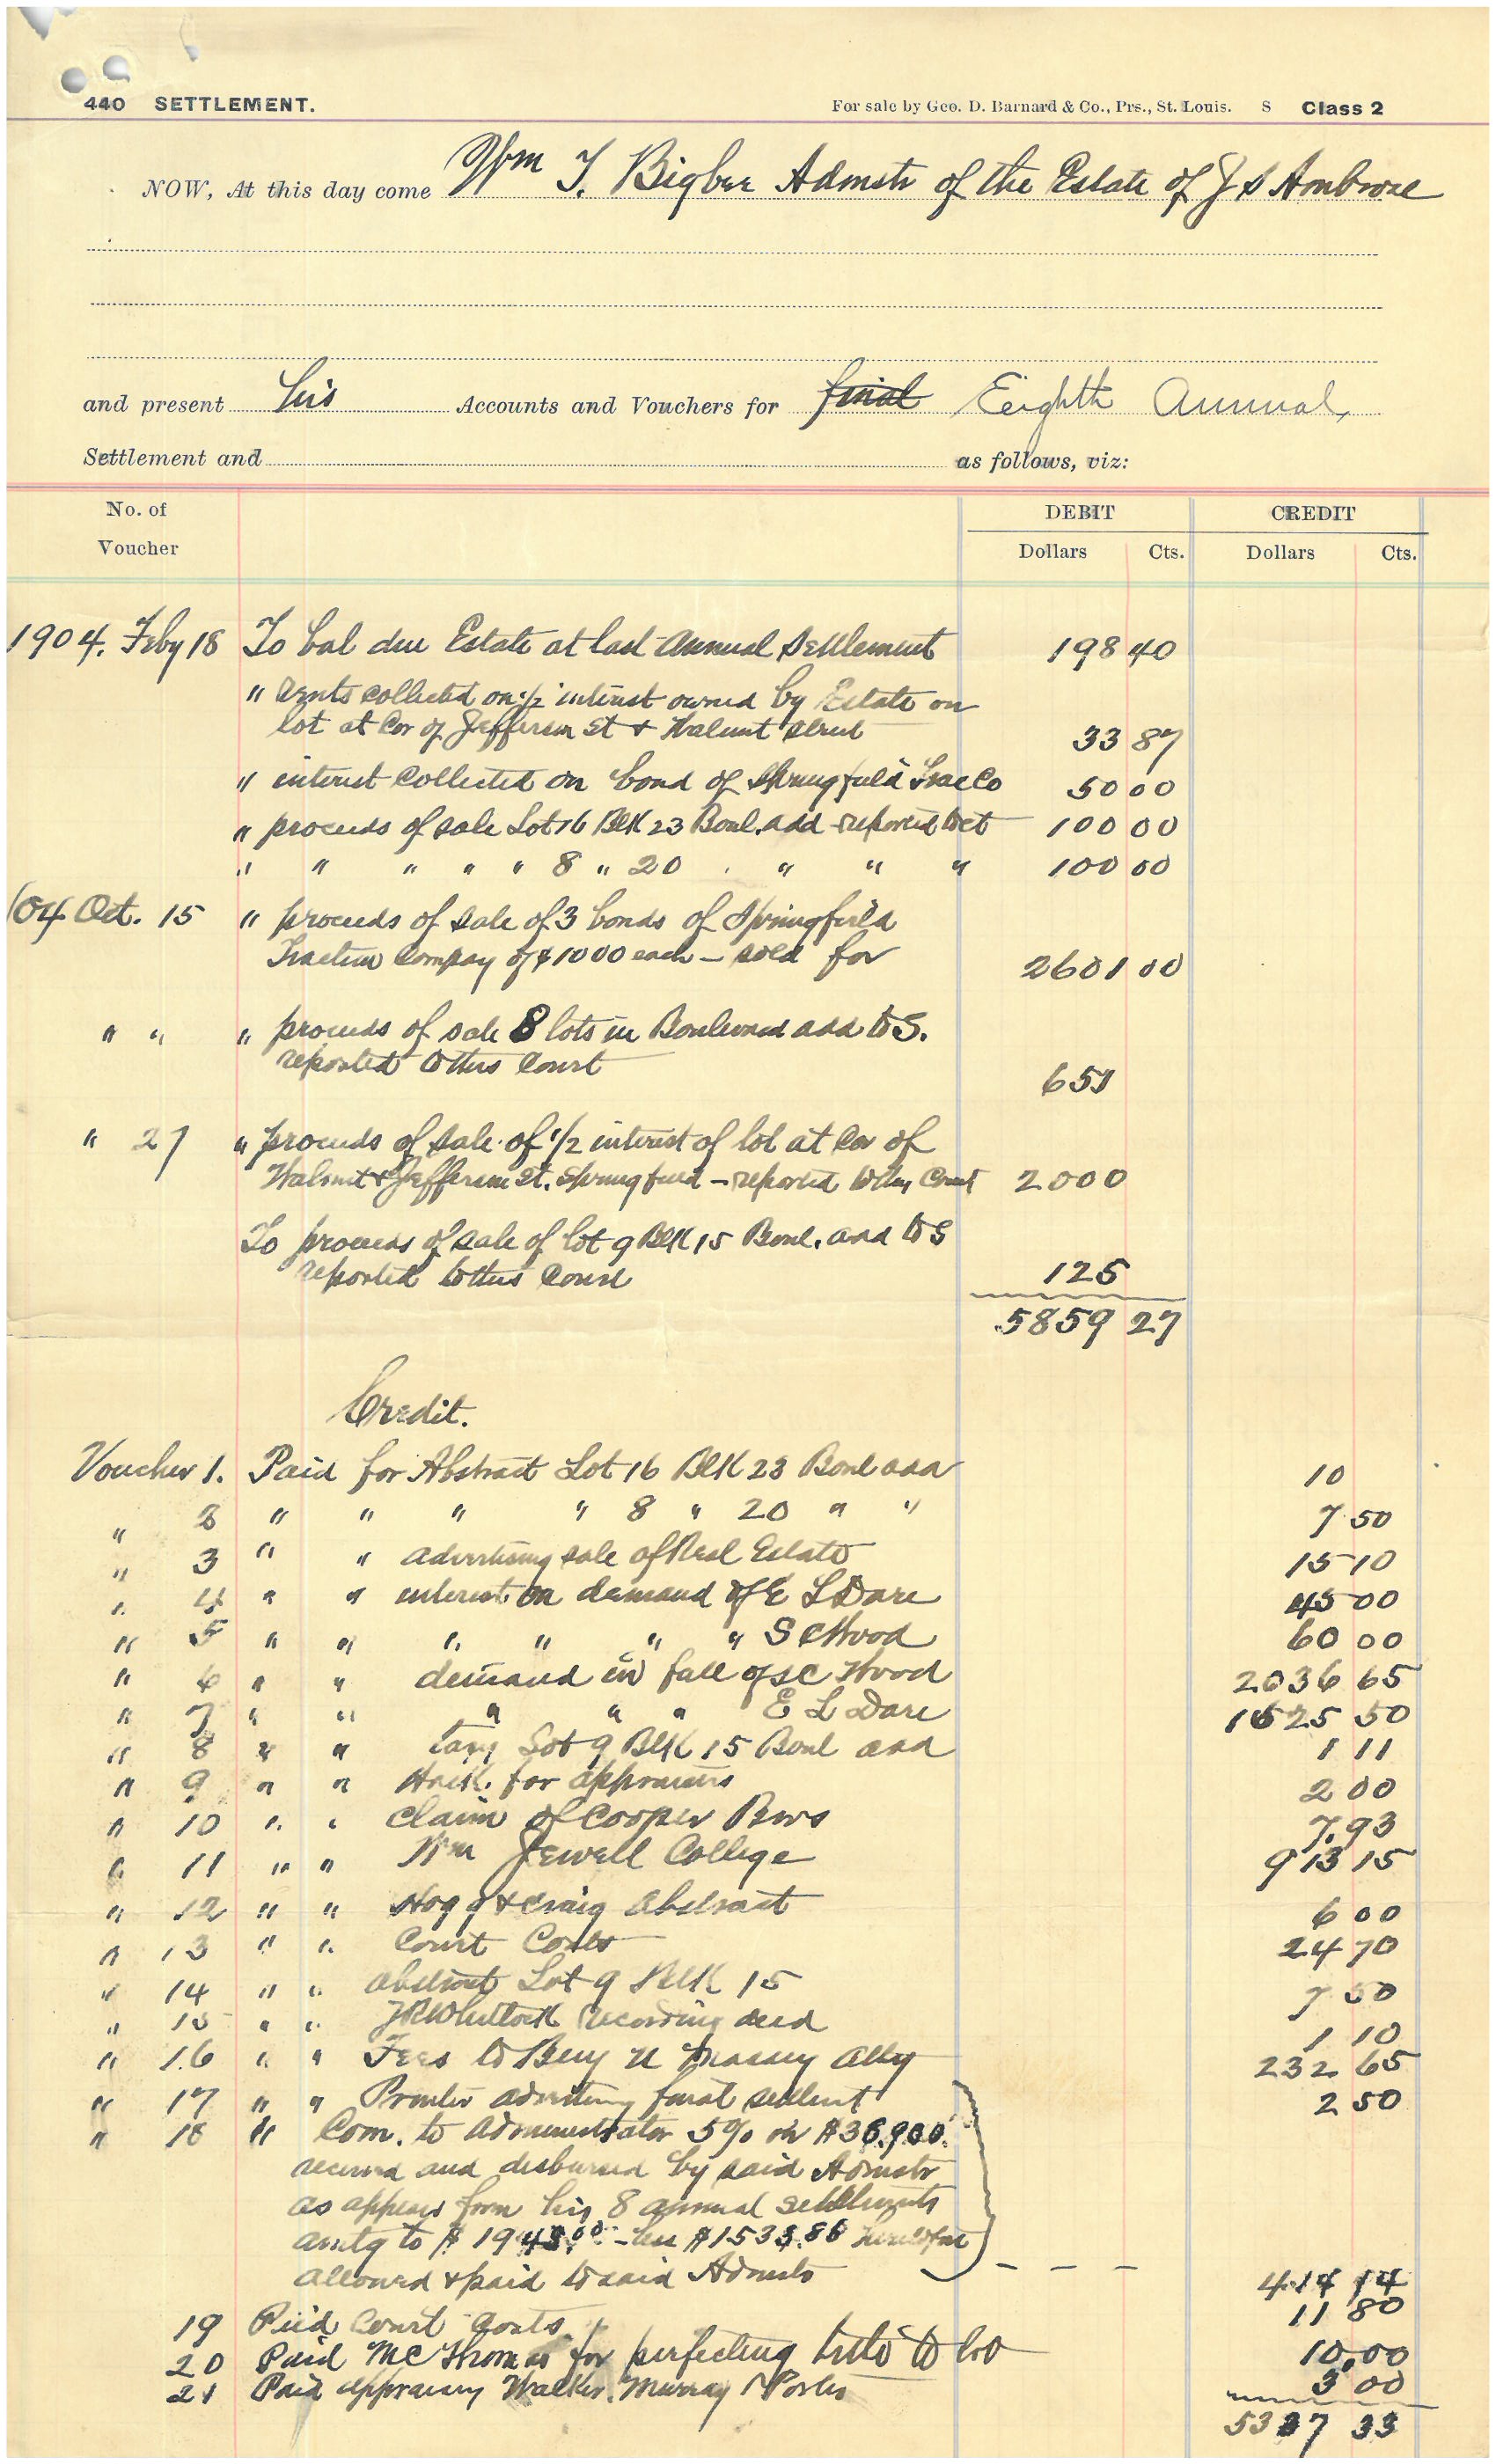 440 SETTLEMENT. For sale by Geo. D. Barnard & Co., Prs., St. Louis. S Class 2
NOW, At this day come Wm T. Bigbee Admstr of the Estate of J S Ambrose
and present his Accounts and Vouchers for final Eighth Annual,
Settlement and as follows, viz:
No. of Voucher DEBIT CREDIT
Dollars Cts. Dollars Cts.
1904. Feby 18 To bal due Estate at last Annual Settlement 198 40
" rents collected on 1/2 interest owned by Estate on
lot at Cor of Jefferson St & Walnut street 33 87
" interest collected on bond of Springfield Trac Co 50 00
" proceeds of sale Lot 16 Blk 23 Boul. add reported to ct 100 00
" " " " " 8 " 20 " " " 100 00
'04 Oct. 15 " proceeds of sale of 3 bonds of Springfield
Traction Compay of $1000 each - sold for 2601 00
" " " proceeds of sale 8 lots in Boulevard add to S.
reported to this Court 651
" 27 " proceeds of sale of 1/2 interest of lot at Cor of
Walnut & Jefferson St. Springfield - reported to this Court 2000
To proceeds of sale of lot 9 Blk 15 Boul. add to S
reported to this Court 125
5859 27
Credit.
Voucher 1. Paid for Abstract Lot 16 Blk 23 Boul add 10
" 2 " " " " 8 " 20 " " 7 50
" 3 " " advertising sale of Real Estate 15 10
" 4 " " interest on demand of E L Dare 45 00
" 5 " " " " " " S C Wood 60 00
" 6 " " demand in full of S C Wood 2036 65
" 7 " " " " " E L Dare 1525 50
" 8 " " taxes Lot 9 Blk 15 Boul add 1 11
" 9 " " Hack for appraisers 2 00
" 10 " " claim of Cooper Bros 7.93
" 11 " " Wm Jewell College 913 15
" 12 " " Hogg & Craig Abstract 6 00
" 13 " " Court Costs 24 70
" 14 " " abstract Lot 9 Blk 15 7 50
" 15 " " Whitlock recording deed 1 10
" 16 " " Fees to Benj U Massey atty 232 65
" 17 " " Printer advertising final settlemt 2 50
" 18 " Com. to Administrator 5% on $38,900.
received and disbursed by said Admstr
as appears from his 8 annual settlments
amtg to $1948.00 - less $1533.86 heretofore
allowed & paid to said Admstr - - - 414 14
19 Paid Court Costs 11 80
20 Paid McThomas for perfecting title to lot 10.00
21 Paid appraisers Walker, Murray & Porter 3 00
5337 33